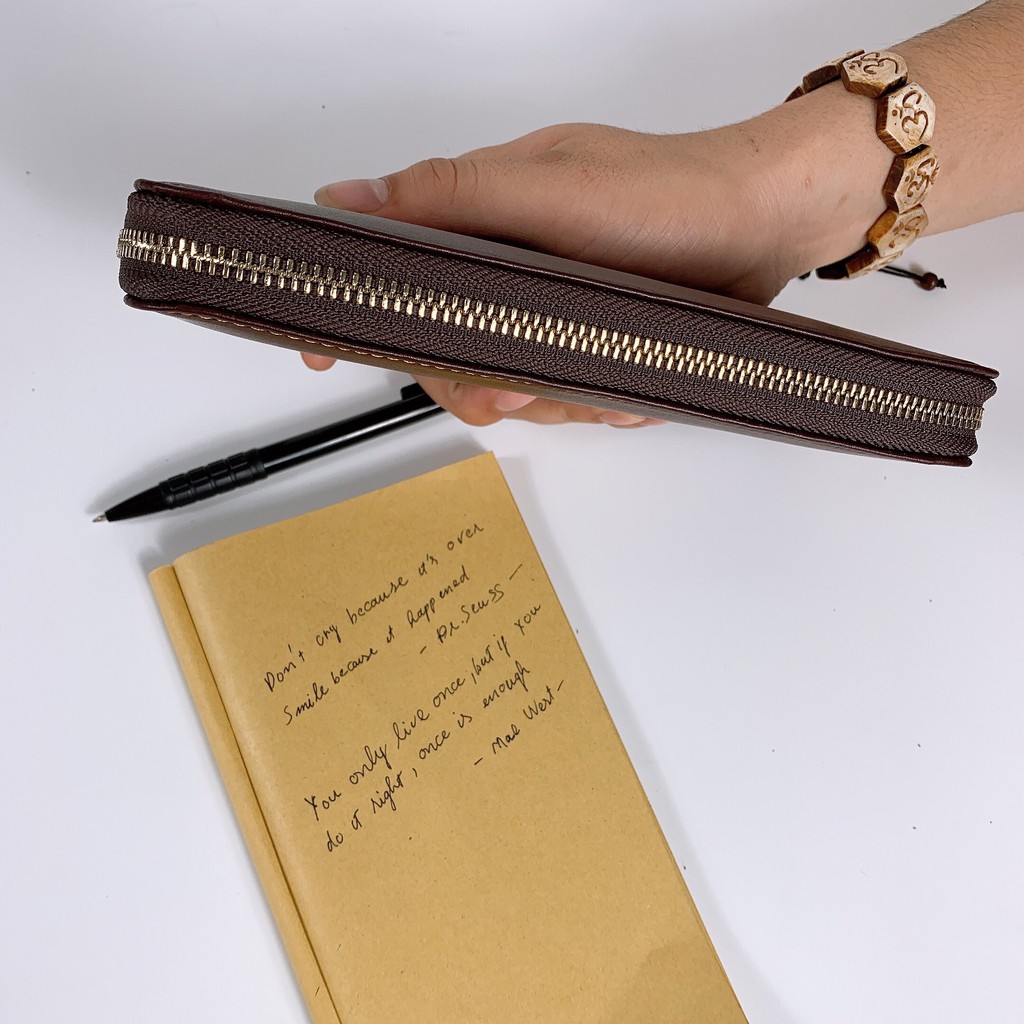 Don't cry because it's over
Smile because it happened
- Dr. Seuss -
You only live once, but if you
do it right, once is enough
- Mae West -